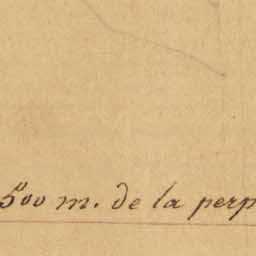 500 m. de la perp